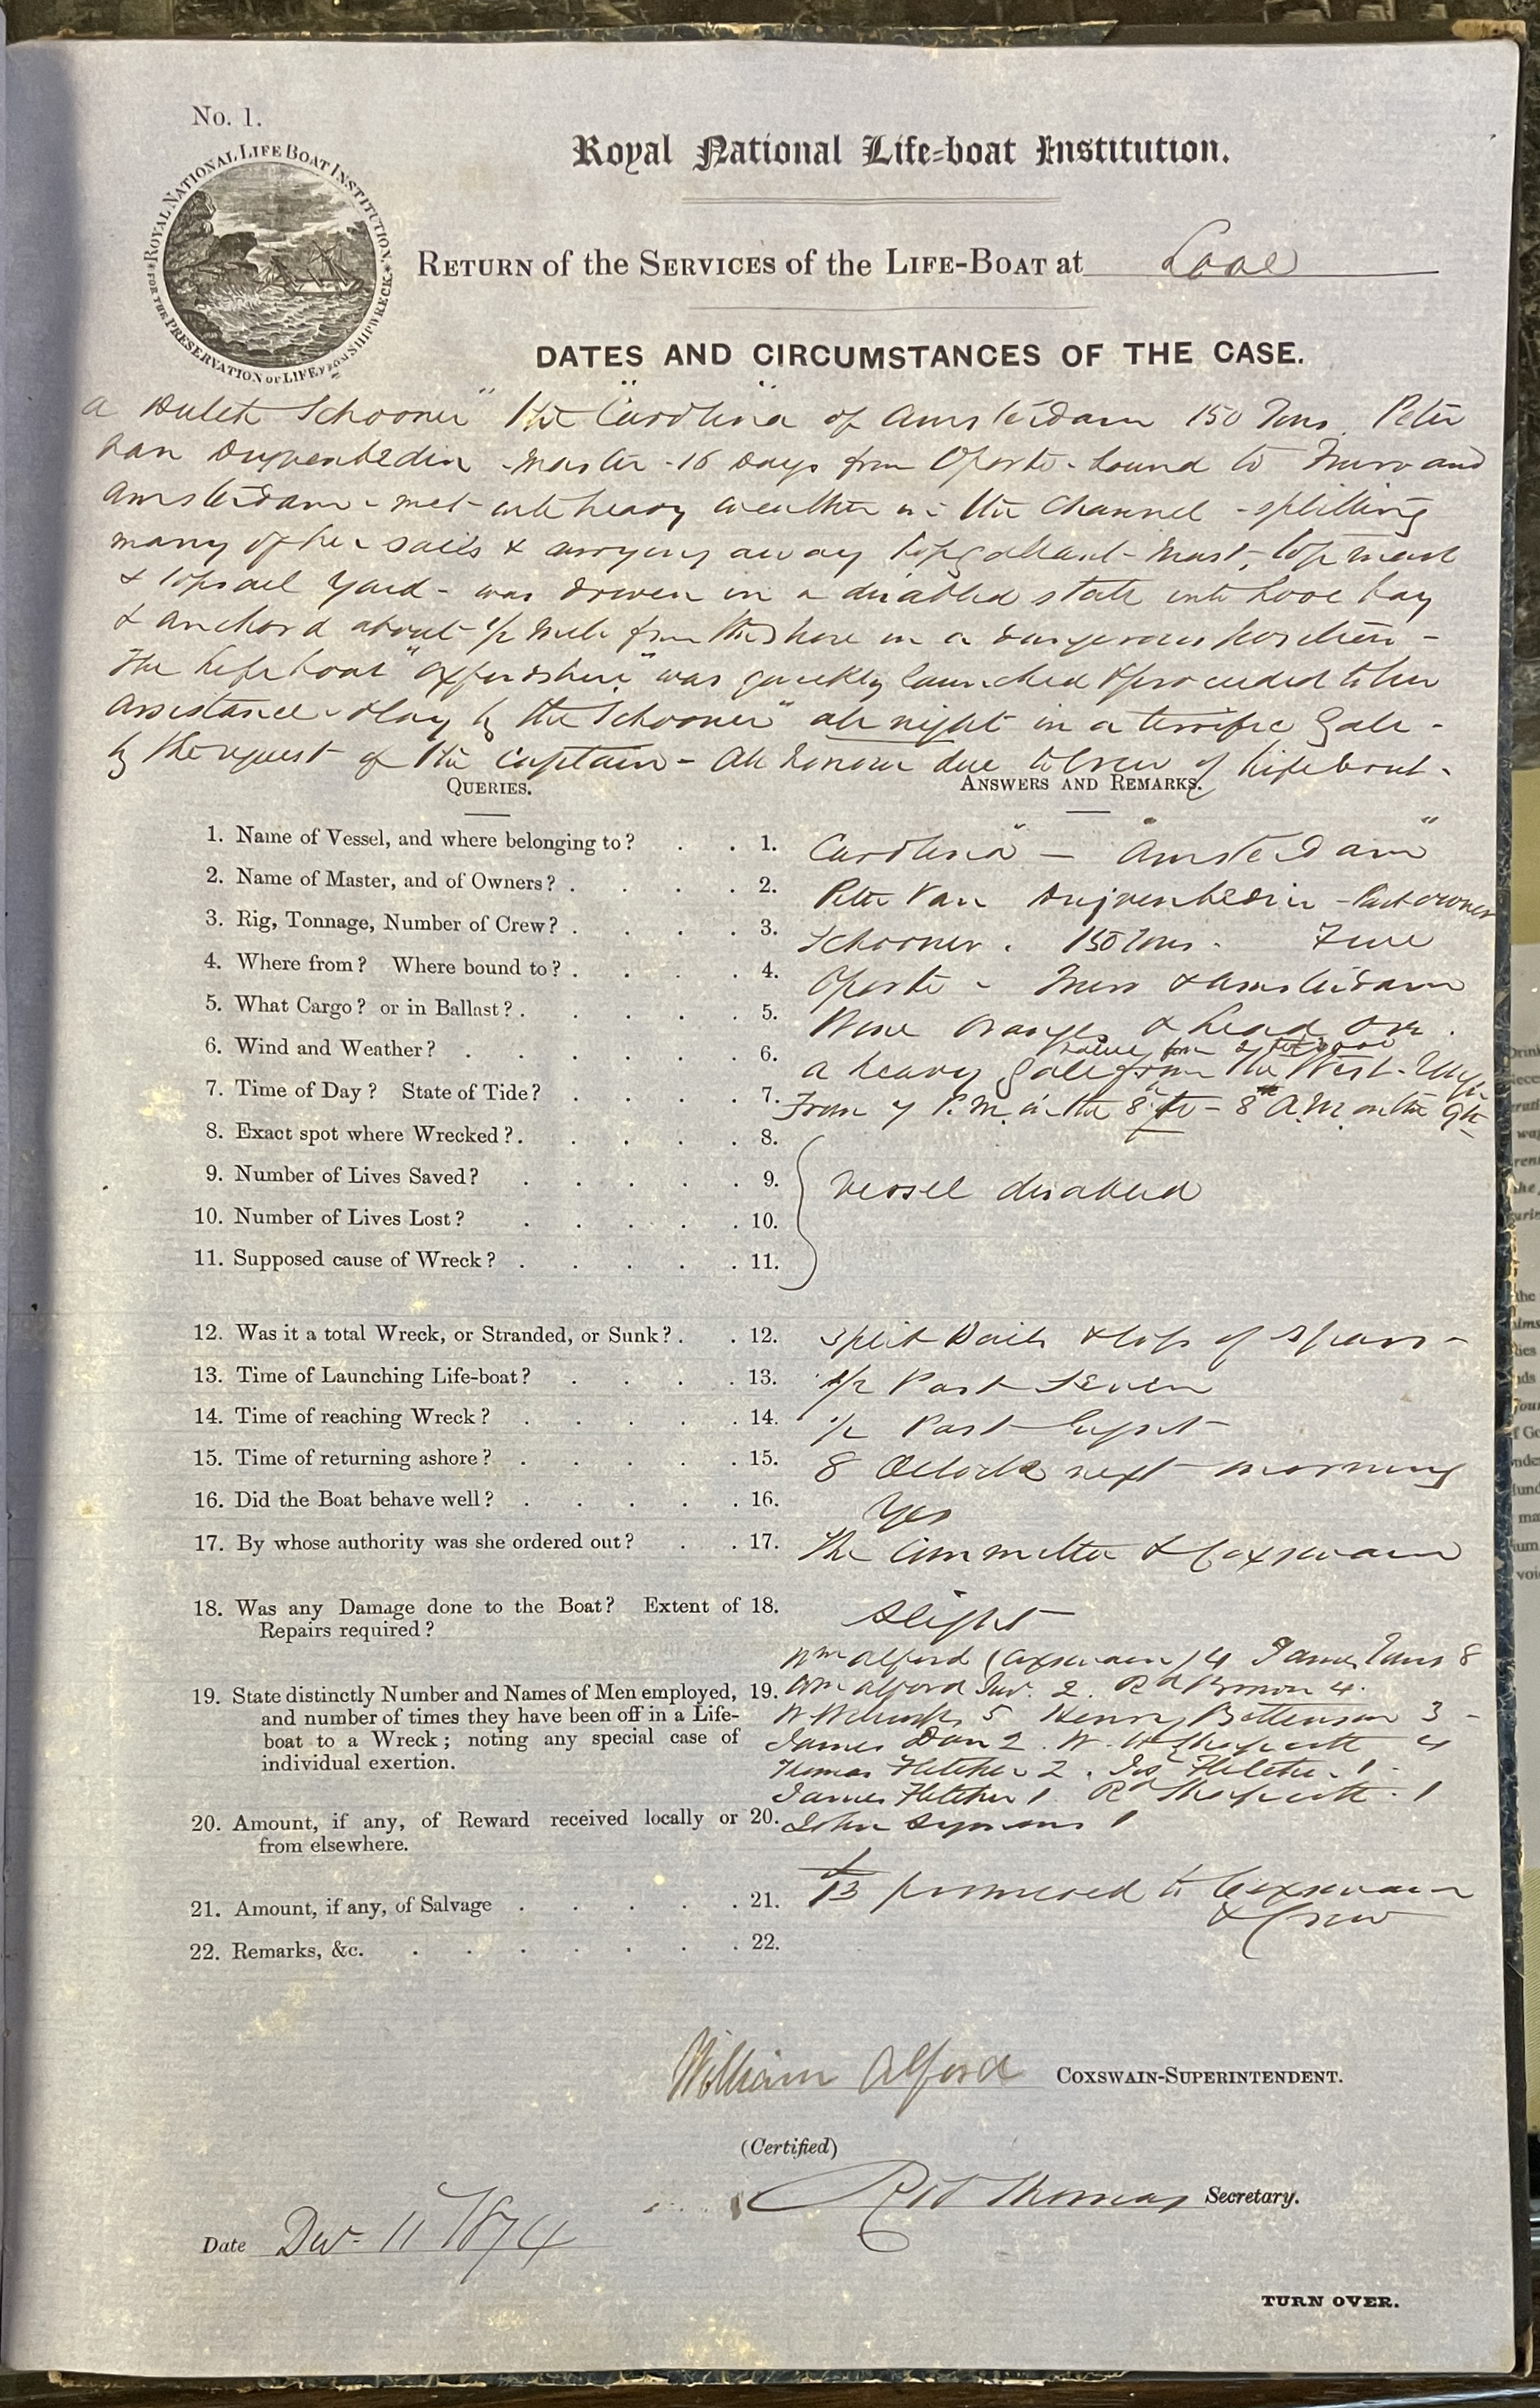 No. 1.
ROYAL NATIONAL LIFE BOAT INSTITUTION.
FOR THE PRESERVATION OF LIFE FROM SHIPWRECK.
Royal National Life-boat Institution.
RETURN of the SERVICES of the LIFE-BOAT at Looe
DATES AND CIRCUMSTANCES OF THE CASE.
a Dutch Schooner" the "Carolina" of Amsterdam 150 Tons. Peter
van master - 16 Days from Oporto - bound to and
Amsterdam - met with heavy weather in the Channel - splitting
many of her sails & carrying away topgallant-mast, topmast
& topsail yard - was driven in a disabled state into Looe bay
& anchord about 1/2 mile from the shore in a dangerous position -
The Lifeboat "Oxfordshire" was quickly launched & proceeded to her
assistance & lay by the Schooner" all night in a terrific gale -
by the request of the Captain - All honour due to Crew of Lifeboat.
QUERIES.
ANSWERS AND REMARKS.
1. Name of Vessel, and where belonging to? 1. Carolina" - "Amsterdam"
2. Name of Master, and of Owners? 2. Peter Van - Part owner
3. Rig, Tonnage, Number of Crew? 3. Schooner. 150 Tons. Five
4. Where from? Where bound to? 4. Oporto - & Amsterdam
5. What Cargo? or in Ballast? 5. Wine Oranges & Lead Ore.
value from
6. Wind and Weather? 6. a heavy gale from the West.
7. Time of Day? State of Tide? 7. From 7 P.M. in the 8th to - 8 A.M. on the 9th
8. Exact spot where Wrecked? 8.
9. Number of Lives Saved? 9. Vessel disabled
10. Number of Lives Lost? 10.
11. Supposed cause of Wreck? 11.
12. Was it a total Wreck, or Stranded, or Sunk? 12. Split Sails & loss of Spars -
13. Time of Launching Life-boat? 13. 1/2 Past Seven
14. Time of reaching Wreck? 14. 1/2 Past Eight
15. Time of returning ashore? 15. 8 Oclock next morning
16. Did the Boat behave well? 16. Yes
17. By whose authority was she ordered out? 17. The Committee & Coxswain
18. Was any Damage done to the Boat? Extent of 18. Slight
Repairs required?
Wm Alford (Coxswain) 4 James 8
19. State distinctly Number and Names of Men employed, 19. Wm Alford Jur. 2. Rd Brown 4.
and number of times they have been off in a Life- W 5 Henry 3 -
boat to a Wreck; noting any special case of James Dan 2. W. 4
individual exertion. Thomas Fletcher 2. Jos Fletcher 1 -
James Fletcher 1 Rd 1
20. Amount, if any, of Reward received locally or 20. John Symons 1
from elsewhere.
21. Amount, if any, of Salvage 21. £13 promised to Coxswain
& Crew
22. Remarks, &c. 22.
William Alford COXSWAIN-SUPERINTENDENT.
(Certified)
Thomas Secretary.
Date Dec 11 1874
TURN OVER.